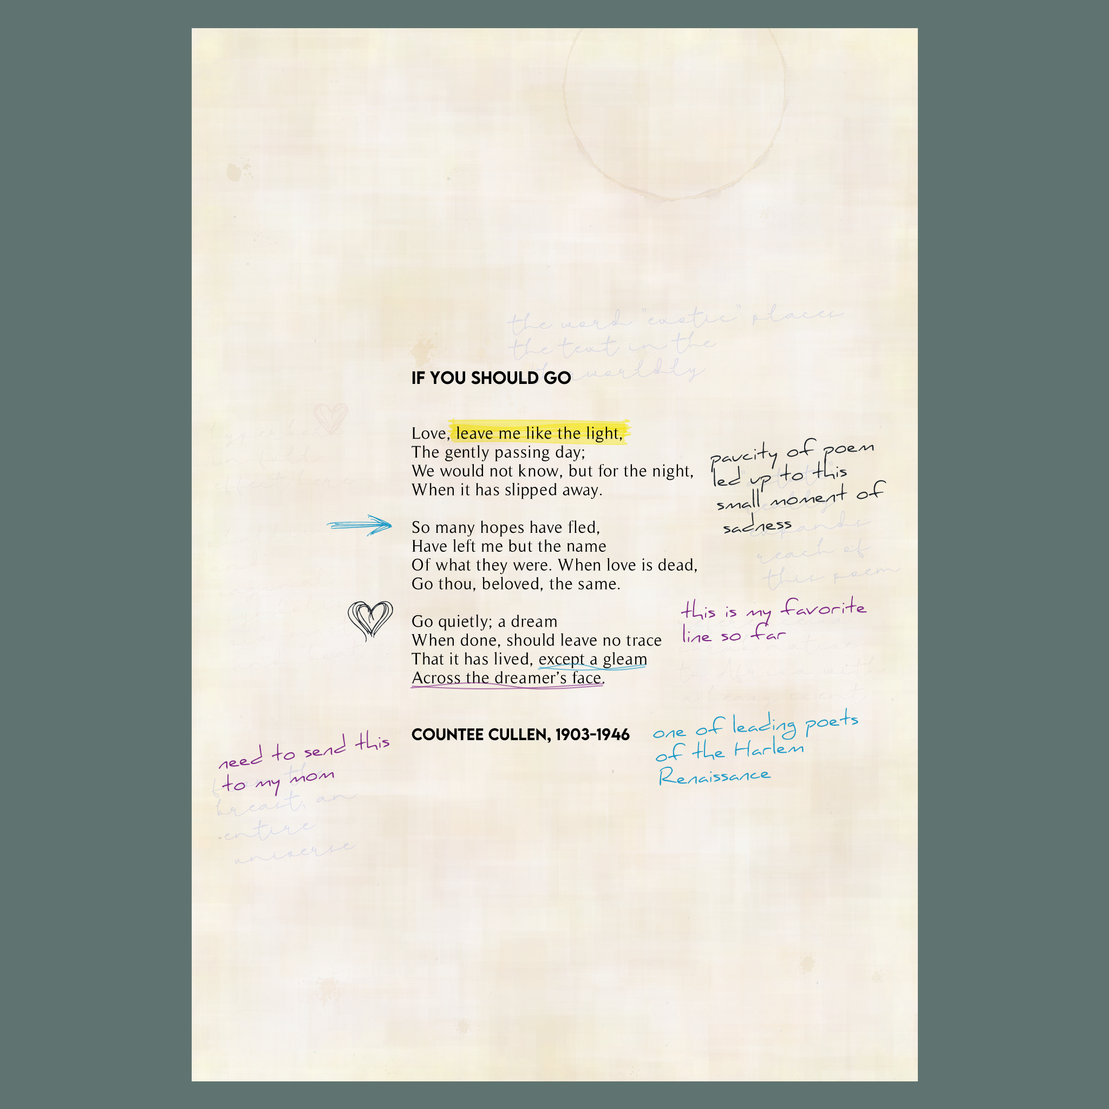 the word "exotic" places
the text in the
worldly
IF YOU SHOULD GO
Love, leave me like the light,
The gently passing day;
We would not know, but for the night,
When it has slipped away.
paucity of poem
led up to this
small moment of
sadness
reach of
this poem
So many hopes have fled,
Have left me but the name
Of what they were. When love is dead,
Go thou, beloved, the same.
Go quietly; a dream
When done, should leave no trace
That it has lived, except a gleam
Across the dreamer's face.
this is my favorite
line so far
COUNTEE CULLEN, 1903-1946
one of leading poets
of the Harlem
Renaissance
need to send this
to my mom
breast, an
entire
universe